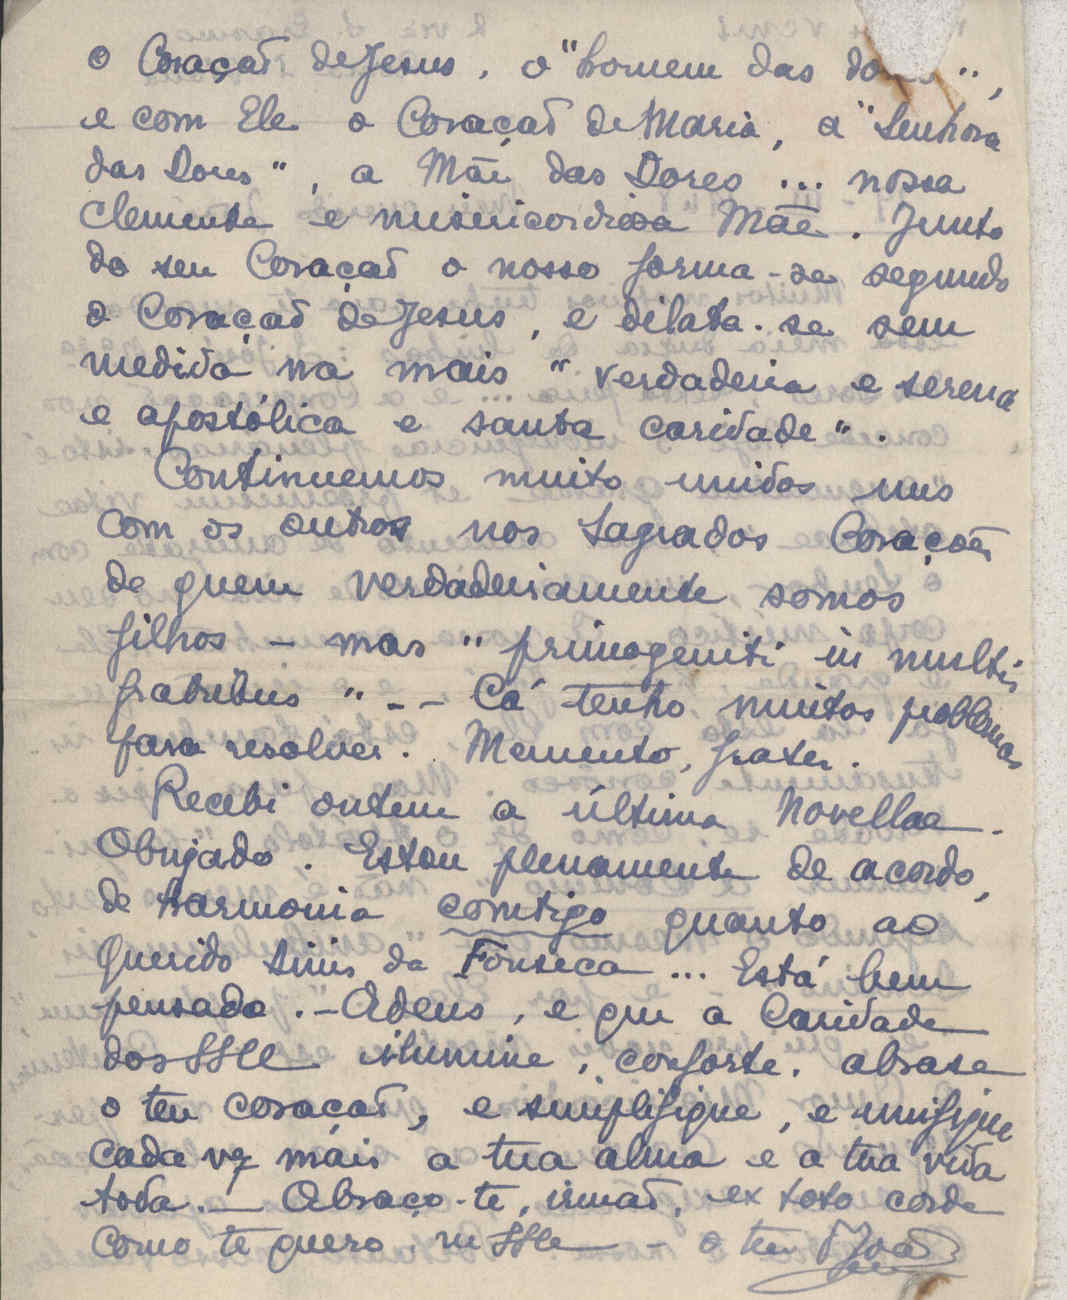 o Coração de Jesus, o "homem das dores",
e com Ele o Coração de Maria, a "Senhora
das Dores", a Mãe das Dores ... nossa
Clemente e misericordiosa Mãe. Junto
do seu Coração o nosso forma-se segundo
o Coração de Jesus, e dilata-se sem
medida na mais "verdadeira e serena
e apostólica e santa caridade".
Continuemos muito unidos uns
com os outros nos Sagrados Corações
de quem verdadeiramente somos
filhos - mas "primogeniti in multis
fratribus" -- Cá tenho muitos problemas
para resolver. Memento, frater.
Recebi ontem a última Novellae.
Obrigado. Estou plenamente de acordo,
de harmonia comtigo quanto ao
Querido da Fonseca ... Está bem
pensado. - Adeus, e que a Caridade
dos SSCC ilumine, conforte, abrase
o teu coração, e simplifique, e unifique
cada vez mais a tua alma e a tua vida
toda. — Abraço-te, irmão, ex toto corde
como te quero, in SSCC - o teu João